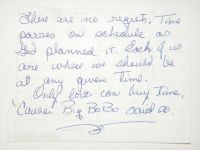 There are no regrets. Time
passes on schedule as
God planned it. Each of us
are where we should be
at any given time.
Only love can buy time,
'Cause' Big BoBo said so.